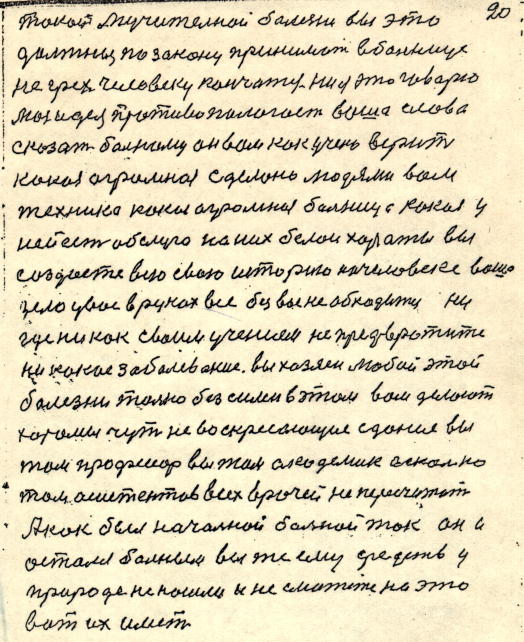 20
такой мучителной болезни вы это
должны по закону принимат в болнице
не грех человеку кончатся. ни я это говарю
моя идея противо пологает ваша слова
сказат болному он вам как учень верит
какая огромная сделона людями вам
техника какая огромная болница какая у
ней ест обслуга на них белои халаты вы
создаете всю свою историю на человеке ваша
дело умое в руках все без вы не обходяти ни
где никак своим учением не предвротите
ни какое заболевание. вы хозяен любой этой
болезни толко без силен в этом вам делоют
хоромы чут не воскресающие сдоние вы
там професор вы там академик а сколко
там асистентов всех врочей не пересчитат
А как был началной болной так он и
остался болным вы же ему средств у
природе не нашли и не сможете на это
вот их имет